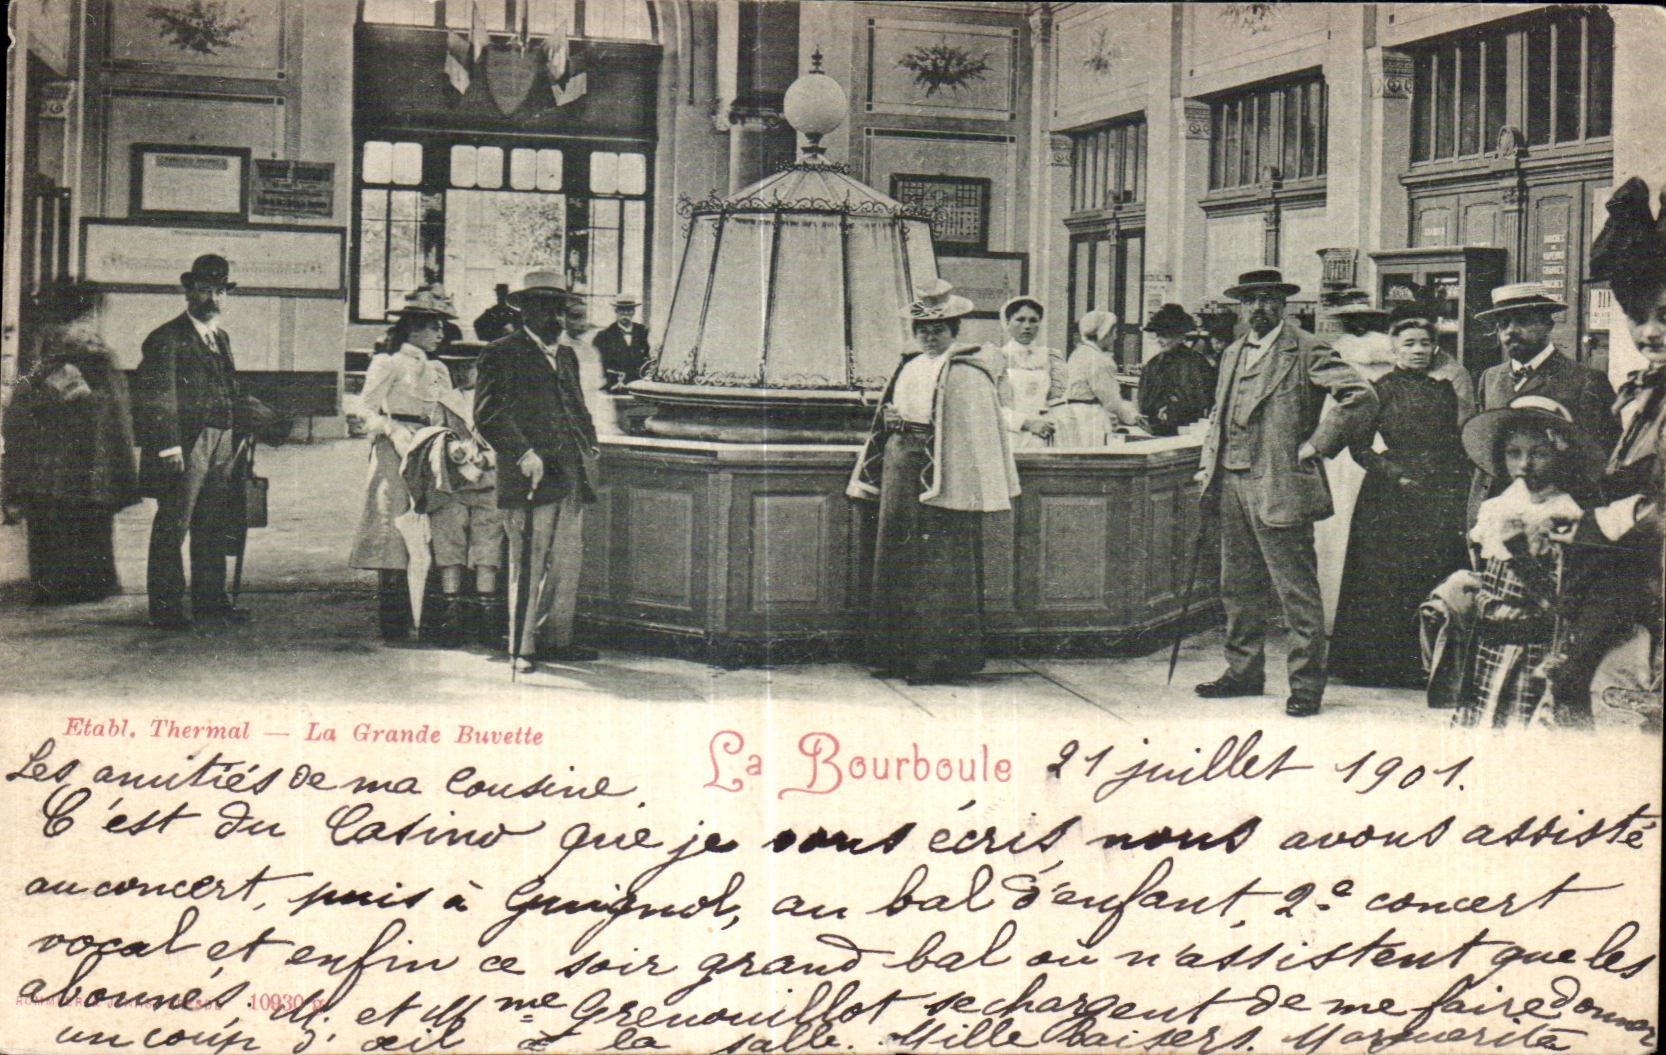 Etabl. Thermal — La Grande Buvette
La Bourboule 21 juillet 1901.
Les amitiés de ma cousine.
C'est du Casino que je vous écris nous avons assisté
au concert, puis à Guignol, au bal d'enfant, 2e concert
vocal et enfin ce soir grand bal où n'assistent que les
abonnés. M. et Mme Grenouillot se chargent de me faire donner
un coup d'œil à la salle. Mille baisers. Marguerita
10930 g